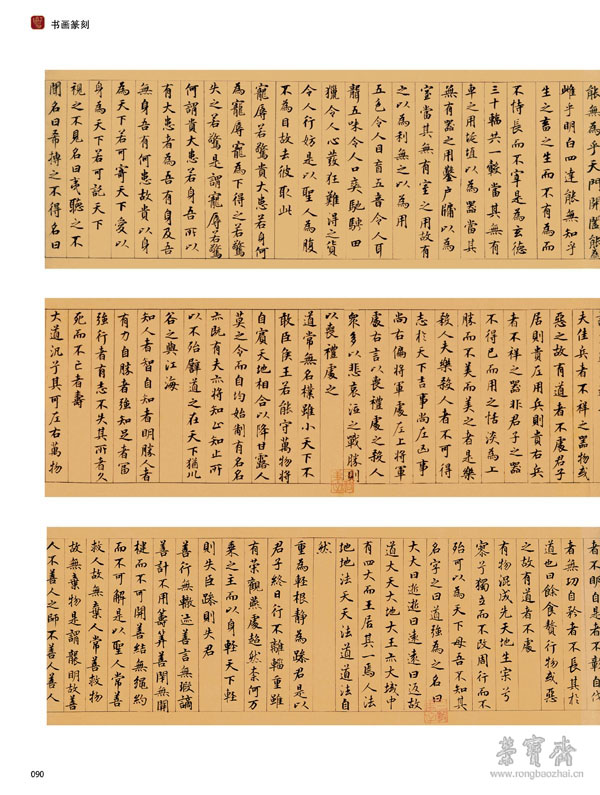 书画篆刻
能無為乎天門開闔能為
雌乎明白四達能無知乎
生之畜之生而不有為而
不恃長而不宰是為玄德
三十輻共一轂當其無有
車之用埏埴以為器當其
無有器之用鑿戶牖以為
室當其無有室之用故有
之以為利無之以為用
五色令人目盲五音令人耳
聾五味令人口爽馳騁田
獵令人心發狂難得之貨
令人行妨是以聖人為腹
不為目故去彼取此
寵辱若驚貴大患若身何
為寵辱寵為下得之若驚
失之若驚是謂寵辱若驚
何謂貴大患若身吾所以
有大患者為吾有身及吾
無身吾有何患故貴以身
為天下若可寄天下愛以
身為天下若可託天下
視之不見名曰夷聽之不
聞名曰希搏之不得名曰
夫佳兵者不祥之器物或
惡之故有道者不處君子
居則貴左用兵則貴右兵
者不祥之器非君子之器
不得已而用之恬淡為上
勝而不美而美之者是樂
殺人夫樂殺人者不可得
志於天下吉事尚左凶事
尚右偏將軍處左上將軍
處右言以喪禮處之殺人
眾多以悲哀泣之戰勝則
以喪禮處之
道常無名樸雖小天下不
敢臣侯王若能守萬物將
自賓天地相合以降甘露人
莫之令而自均始制有名名
亦既有夫亦將知止知止所
以不殆譬道之在天下猶川
谷之與江海
知人者智自知者明勝人者
有力自勝者強知足者富
強行者有志不失其所者久
死而不亡者壽
大道汎兮其可左右萬物
者不明自是者不彰自伐
者無功自矜者不長其於
道也曰餘食贅行物或惡
之故有道者不處
有物混成先天地生寂兮
寥兮獨立而不改周行而不
殆可以為天下母吾不知其
名字之曰道強為之名曰
大大曰逝逝曰遠遠曰返故
道大天大地大王亦大域中
有四大而王居其一焉人法
地地法天天法道道法自
然
重為輕根靜為躁君是以
君子終日行不離輜重雖
有榮觀燕處超然柰何萬
乘之主而以身輕天下輕
則失臣躁則失君
善行無轍迹善言無瑕謫
善計不用籌筭善閉無關
楗而不可開善結無繩約
而不可解是以聖人常善
救人故無棄人常善救物
故無棄物是謂襲明故善
人不善人之師不善人善人
090
榮寶齋
www.rongbaozhai.cn